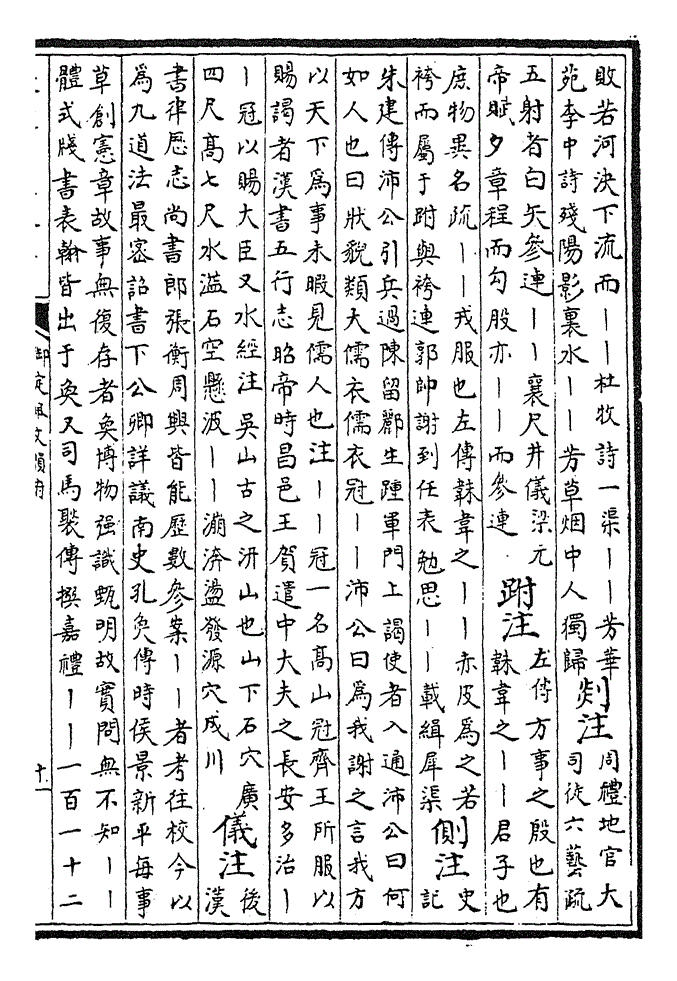 敗若河決下流而——杜牧詩一渠——芳華
苑李中詩殘陽影裏水——芳草烟中人獨歸
剡注
周禮地官大
司徒六藝疏
五射者白矢參連——襄尺井儀梁元
帝賦夕章程而勾股亦——而參連
跗注
左傳方事之殷也有
韎韋之——君子也
庶物異名疏——戎服也左傳韎韋之——赤皮為之若
袴而屬于跗與袴連郭帥謝到任表勉思——載緝犀渠
側注
史
記
朱建傳沛公引兵過陳留酈生踵軍門上謁使者入通沛公曰何
如人也曰狀貌類大儒衣儒衣冠——沛公曰為我謝之言我方
以天下為事未暇見儒人也注——冠一名高山冠齊王所服以
賜謁者漢書五行志昭帝時昌邑王賀遣中大夫之長安多治—
—冠以賜大臣又水經注吳山古之汧山也山下石穴廣
四尺高七尺水溢石空懸波——漰渀盪發源穴成川
儀注
後
漢
書律厯志尚書郎張衡周興皆能歷數參案——者考往校今以
為九道法最密詔書下公卿詳議南史孔奐傳時侯景新平每事
草創憲章故事無復存者奐博物强識甄明故實問無不知——
體式牋書表翰皆出于奐又司馬褧傳撰嘉禮——一百一十二
御定佩文韻府